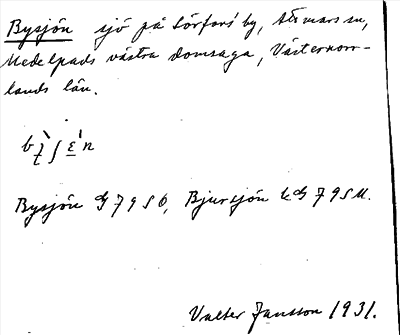 Bysjön sjö på Lörfors' by, Attmars sn,
Medelpads västra domsaga, Västernorr-
lands län.
Bysjön G 79 S Ö, Bjursjön LG 79 S U.
Valter Jansson 1931.